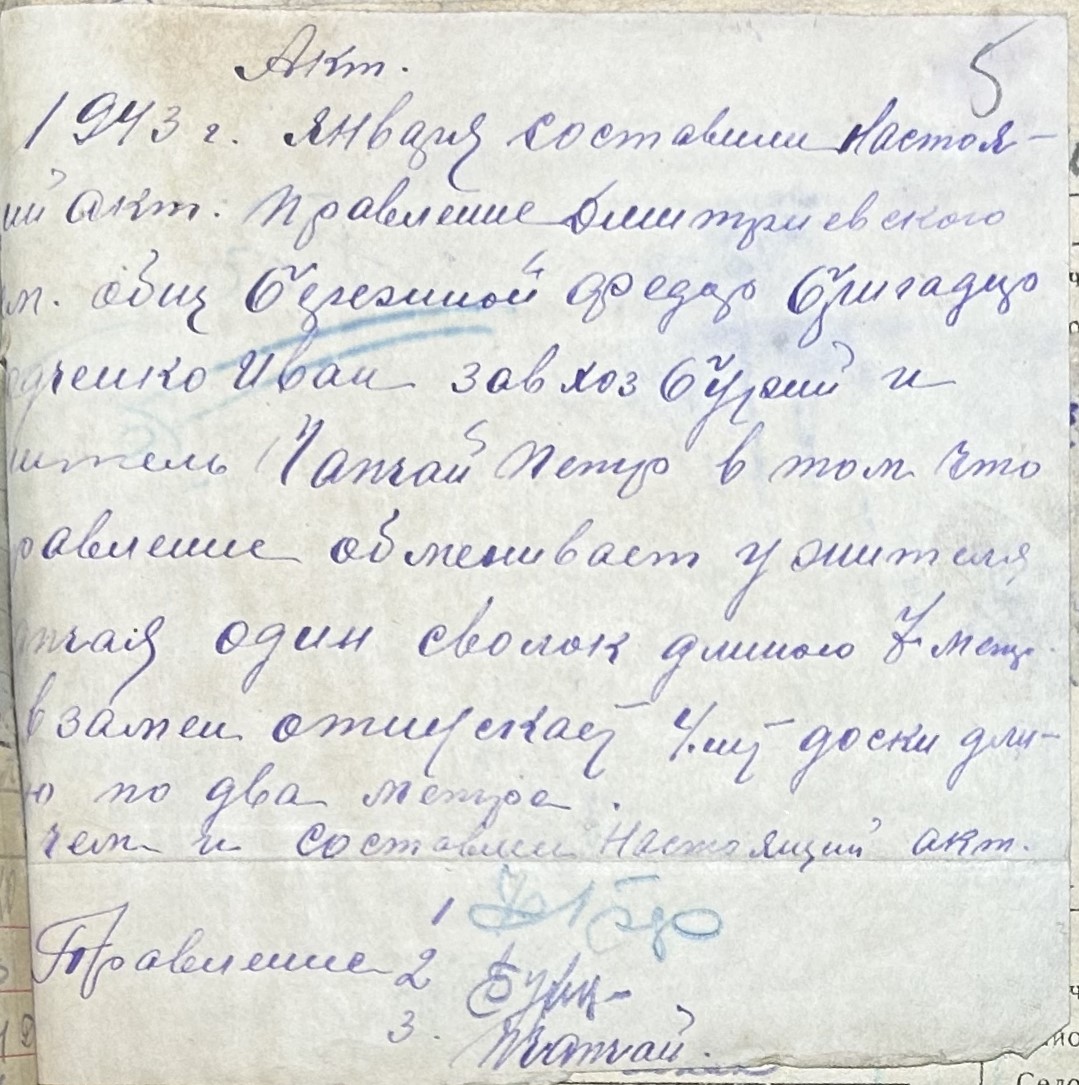 Акт.
5
1943 г. января составили настоя-
ий акт. Правление Дмитриевского
м. общ Бережной Федор бригадир
дченко Иван завхоз Бурхий и
итель Чапчай Петр в том что
равление обменивает у жителя
пчая один сволок длиною 7 метр.
взамен отпускает 4 шт доски дли-
ю по два метра.
чем и составили настоящий акт.
Правление 1
2
3. Чапчай.